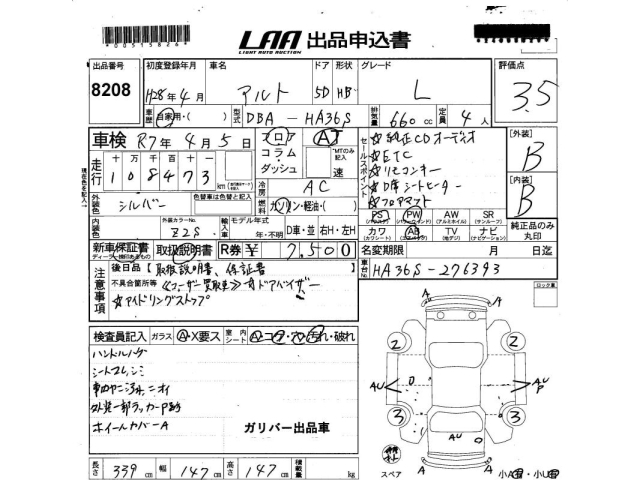 00515826
LAA 出品申込書
LIGHT AUTO AUCTION
出品番号
8208
初度登録年月 車名 ドア 形状 グレード
H28年4月 アルト 5D HB L
評価点
3.5
車歴 自家用・( ) 型式 DBA - HA36S 排気量 660 cc 定員 4人
車検 R7年4月5日
フロア コラム ダッシュ
AT
*MTのみ記入
速
セールスポイント
☆純正CDオーディオ
☆ETC
☆リモコンキー
☆D席シートヒーター
☆フロアマスト
[外装]
B
[内装]
B
走行 十 万 千 百 十 一
108473 km
冷房 AC
外装色 シルバー 色替車は色替と記入
燃料 ガソリン・軽油・( )
内装色 外装カラーNo. Z2S
輸入車 モデル年式 年・不明 D車・並 右H・左H
PS PW AW SR
(パワステ) (パワーウィンド) (アルミホイル) (サンルーフ)
カワ AB TV ナビ
(カワシート) (エアバッグ) (地デジ) (ナビゲーション)
純正品のみ丸印
新車保証書 取扱説明書 R券 ¥ 7,500
名変期限 月 日迄
車台No. HA36S-276393
注意事項
後日品【取扱説明書、保証書
不具合箇所等 ≪ユーザー買取車≫ ☆ドアバイザー
☆アイドリングストップ
ロック重
検査員記入 ガラス A・X要ス 室内シート A・コゲ・穴・汚れ・破れ
ハンドルハゲ
シートスレ,シミ
車内ヤニ汚れ,ニオイ
外装一部ラッカーP跡
ホイールカバーA
ガリバー出品車
長さ 339 cm 幅 147 cm 高さ 147 cm 積載量 kg
A A
2 2
AU AU
P
3 3
AU
A A
スペア
小A・小U